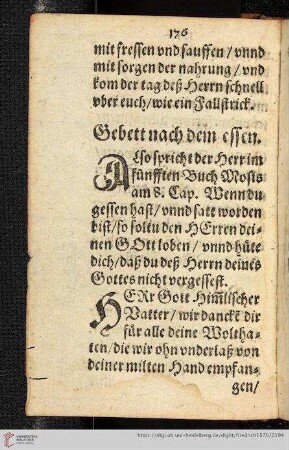 176
mit fressen vnd sauffen / vnnd
mit sorgen der nahrung / vnd
kom der tag deß Herrn schnell
vber euch / wie ein Fallstrick.
Gebett nach dem essen.
ALso spricht der Herr im
fünfften Buch Mosis
am 8. Cap. Wenn du
gessen hast / vnnd satt worden
bist / so soltu den HErren dei-
nen GOtt loben / vnnd hüte
dich / daß du deß Herrn deines
Gottes nicht vergessest.
HERr Gott Him̃lischer
Vatter / wir dancke dir
für alle deine Woltha-
ten / die wir ohn vnderlaß von
deiner milten Hand empfan-
gen /
UNIVERSITÄTS-
BIBLIOTHEK
HEIDELBERG